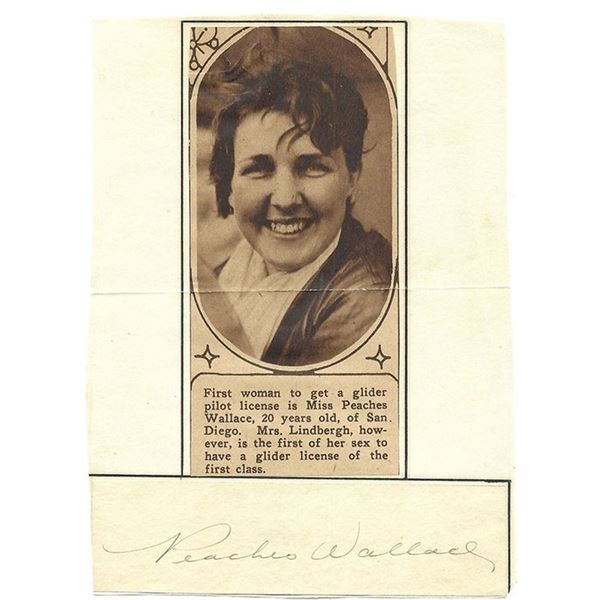 First woman to get a glider
pilot license is Miss Peaches
Wallace, 20 years old, of San
Diego. Mrs. Lindbergh, how-
ever, is the first of her sex to
have a glider license of the
first class.
Peaches Wallace